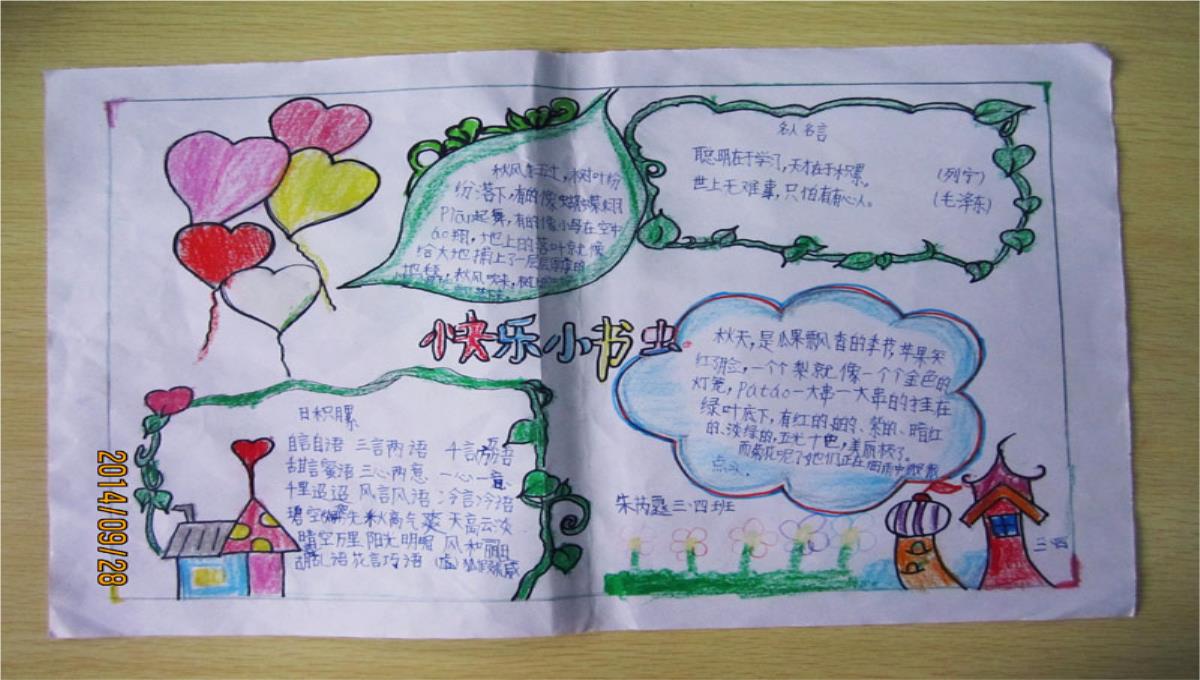 秋风车过,树叶纷
纷落下,有的像蝴蝶翩
pian起舞,有的像小母在空中
ao翔,地上的落叶就像
给大地铺上了一层厚厚的
地毯,秋风吹来,树
名人名言
聪明在于学习,天才在于积累。
(列宁)
世上无难事,只怕有有心人。
(毛泽东)
快乐小书虫
秋天,是瓜果飘香的季节,苹果笑
红了脸,一个个梨就像一个个金色的
灯笼,putao一大串一大串的挂在
绿叶底下,有红的、白的、紫的、暗红
的、淡绿的,五光十色,美丽极了。
而菊花呢?她们正在雨中
点头。
日积月累
自言自语 三言两语 千言万语
甜言蜜语 三心两意 一心一意
千里迢迢 风言风语 冷言冷语
碧空如洗 秋高气爽 天高云淡
晴空万里 阳光明媚 风和丽日
胡乱语 花言巧语 狐假虎威
三.四班
2014/09/28